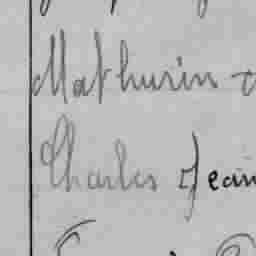 Mathurin
Charles Jean